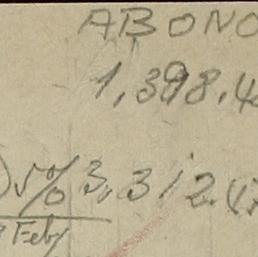 ABONO
1,398.4
5% 3,312.
Feby